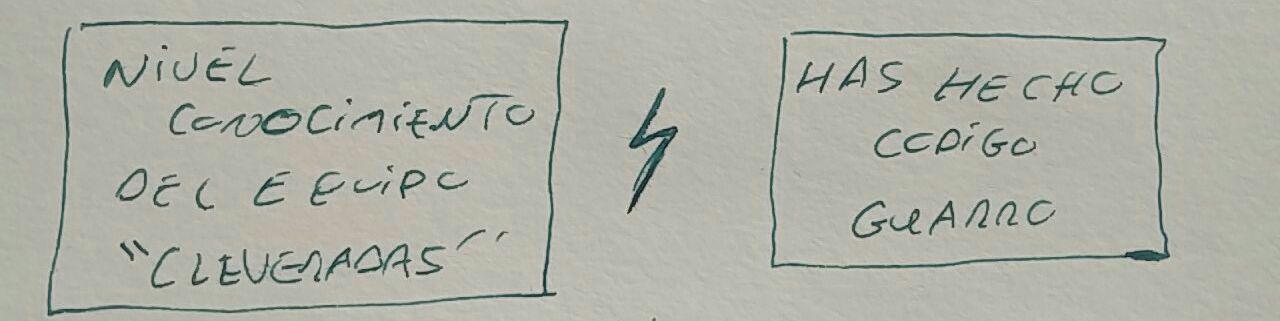 NIVEL
CONOCIMIENTO
DEL EQUIPO
"CLEVERADAS"
HAS HECHO
CODIGO
GUARRO